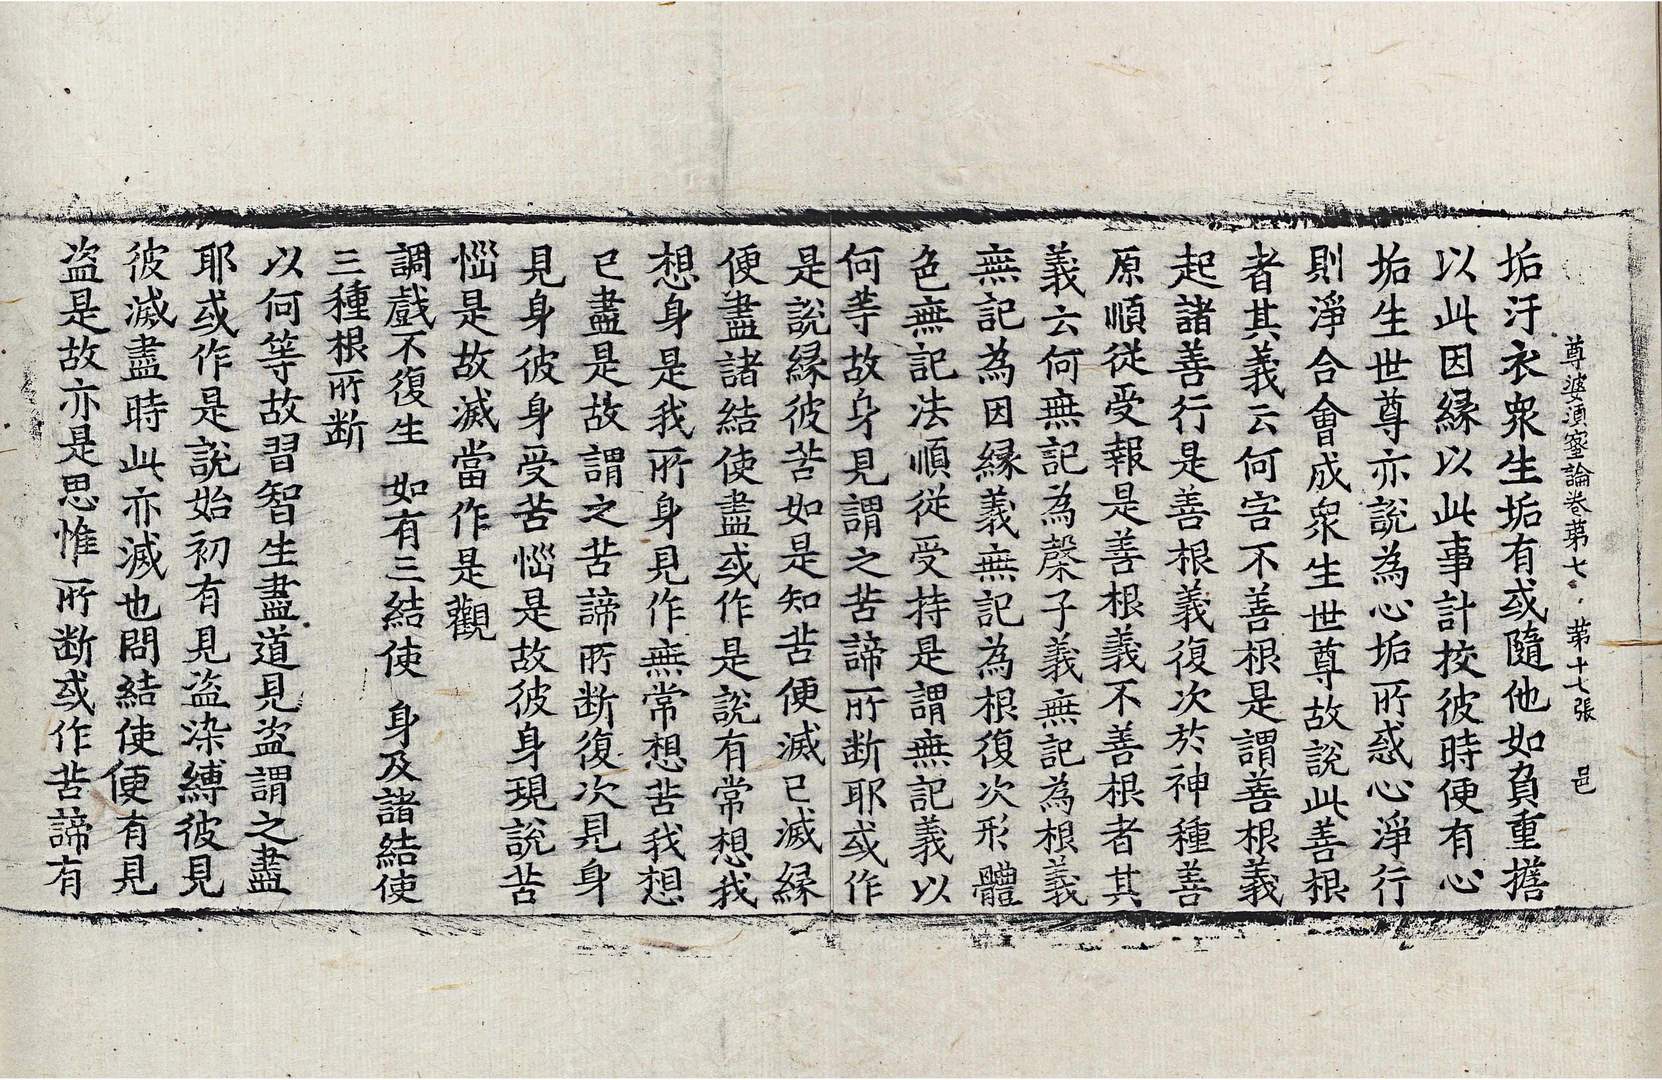 尊婆湏蜜論卷苐七 苐十七張 邑
垢汙衣衆生垢有或隨他如負重擔
以此因緣以此事計挍彼時便有心
垢生世尊亦說為心垢所惑心淨行
則淨合會成衆生世尊故說此善根
者其義云何害不善根是謂善根義
起諸善行是善根義復次於神種善
原順從受報是善根義不善根者其
義云何無記為檕子義無記為根義
無記為因緣義無記為根復次形體
色無記法順從受持是謂無記義以
何等故身見謂之苦諦所断耶或作
是說緣彼苦如是知苦便滅已滅緣
便盡諸結使盡或作是說有常想我
想身是我所身見作無常想苦我想
已盡是故謂之苦諦所断復次見身
見身彼身受苦惱是故彼身現說苦
惱是故滅當作是觀
調戲不復生 如有三結使 身及諸結使
三種根所断
以何等故習智生盡道見盜謂之盡
耶或作是說始初有見盜染縛彼見
彼滅盡時此亦滅也問結使便有見
盜是故亦是思惟所断或作苦諦有